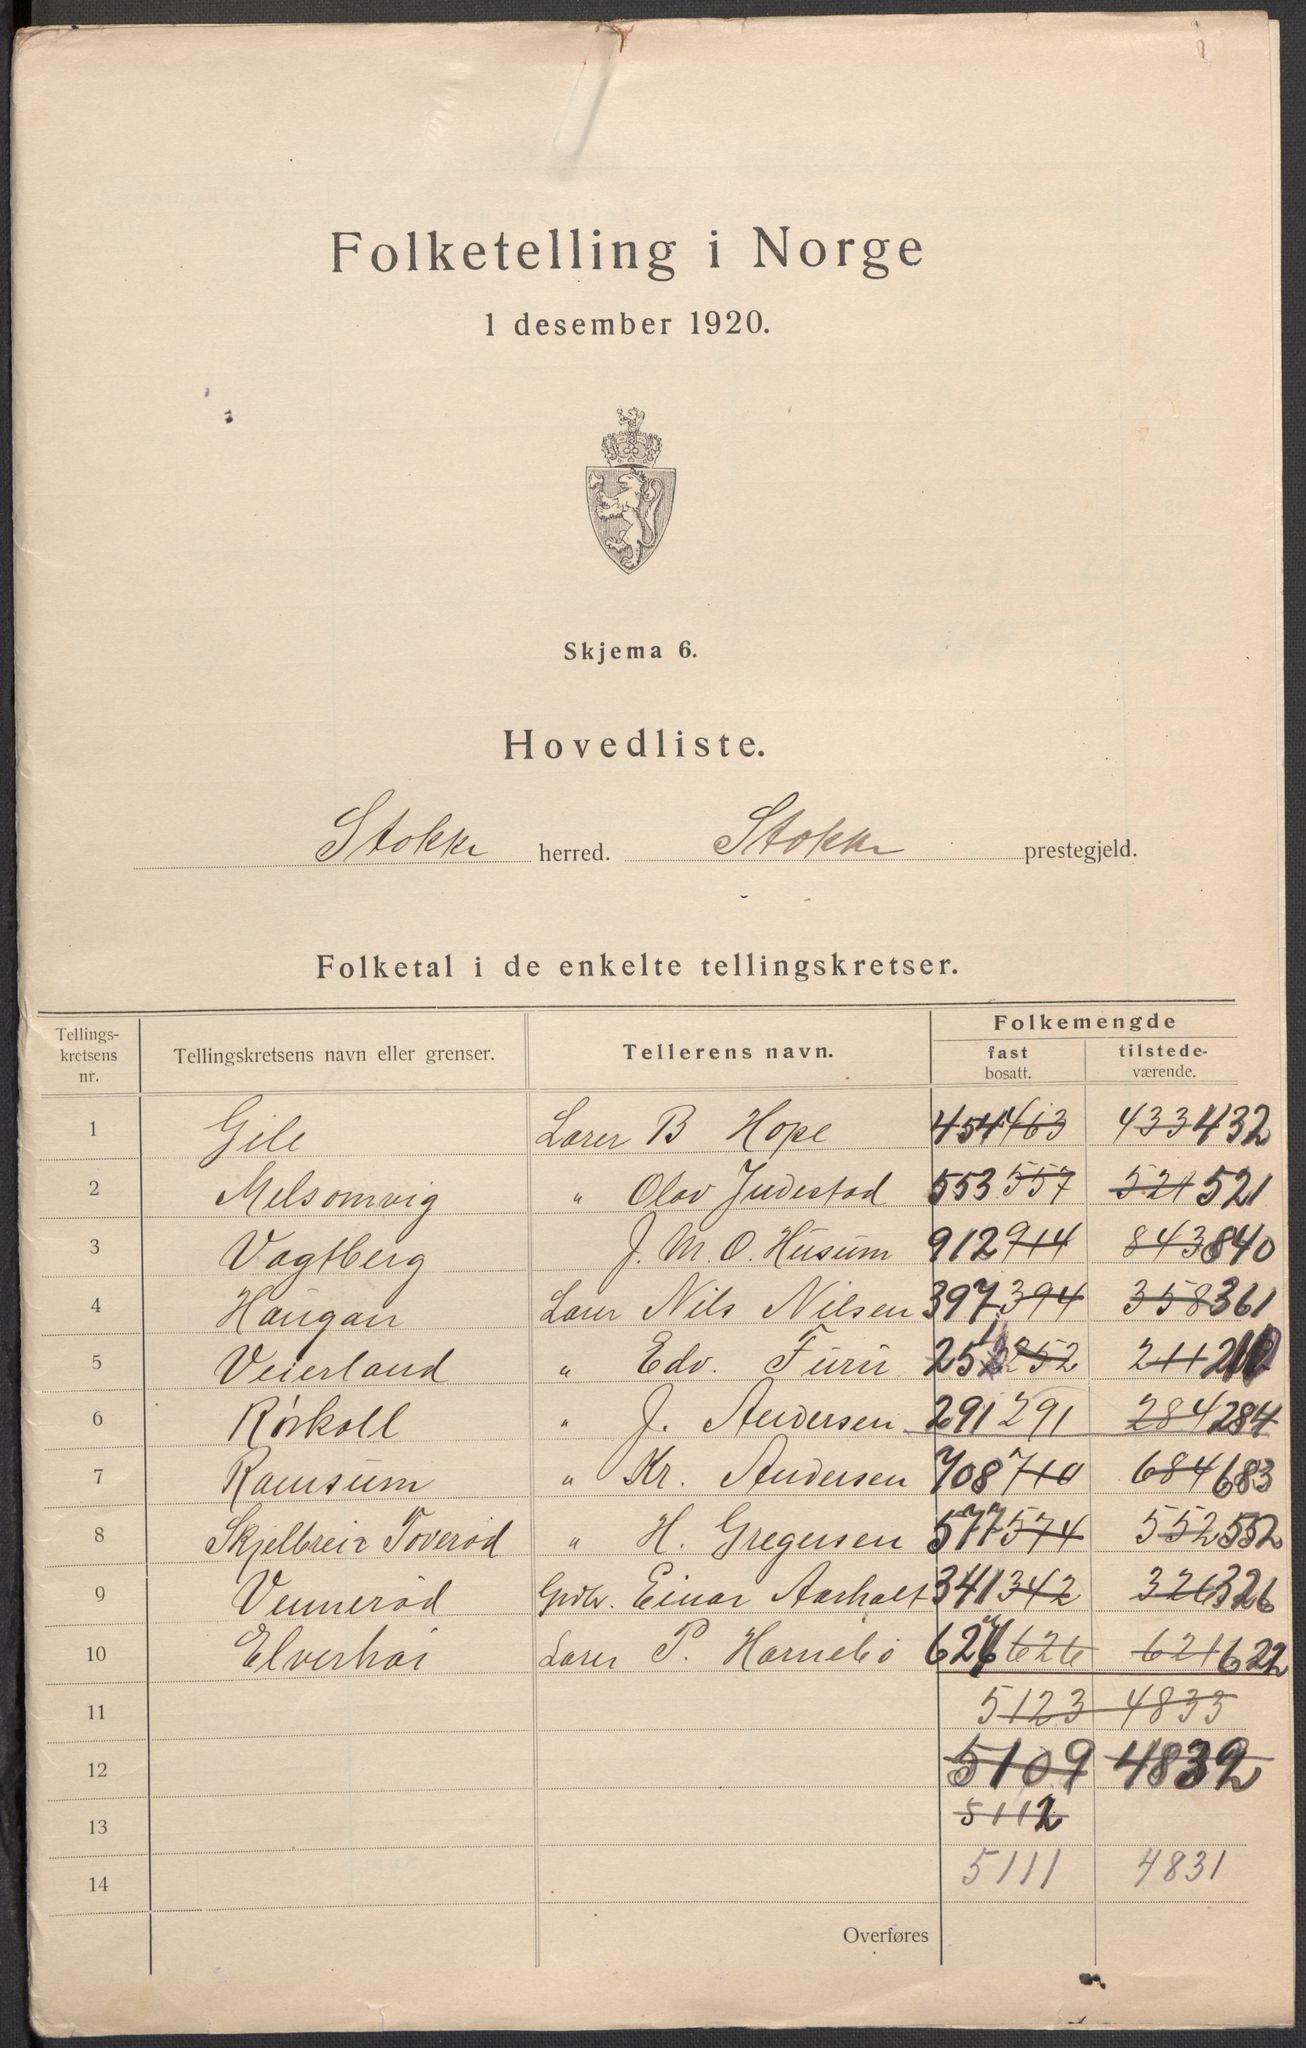 Folketelling i Norge
1 desember 1920.
Skjema 6.
Hovedliste.
Stokke herred. Stokke prestegjeld.
Folketal i de enkelte tellingskretser.
Tellings-kretsens nr. Tellingskretsens navn eller grenser. Tellerens navn. Folkemengde
fast bosatt. tilstede-værende.
1 Gile Lærer B Hope 454 463 433 432
2 Melsomvig " Olav Judestad 553 557 521 521
3 Vagtberg J. M. O. Husum 912 914 843 840
4 Haugan Lærer Nils Nilsen 397 394 358 361
5 Veierland " Edv. Furu 251 252 211 210
6 Rørkoll " J. Andersen 291 291 284 284
7 Ramsum " Kr. Andersen 708 710 684 683
8 Skjelbrei Toverød " H. Gregersen 577 574 552 552
9 Vennerød Grdbr. Einar Aarholt 341 342 326 326
10 Elverhøi Lærer P. Hornebø 627 626 621 622
11 5123 4833
12 5109 4832
13 5112
14 5111 4831
Overføres